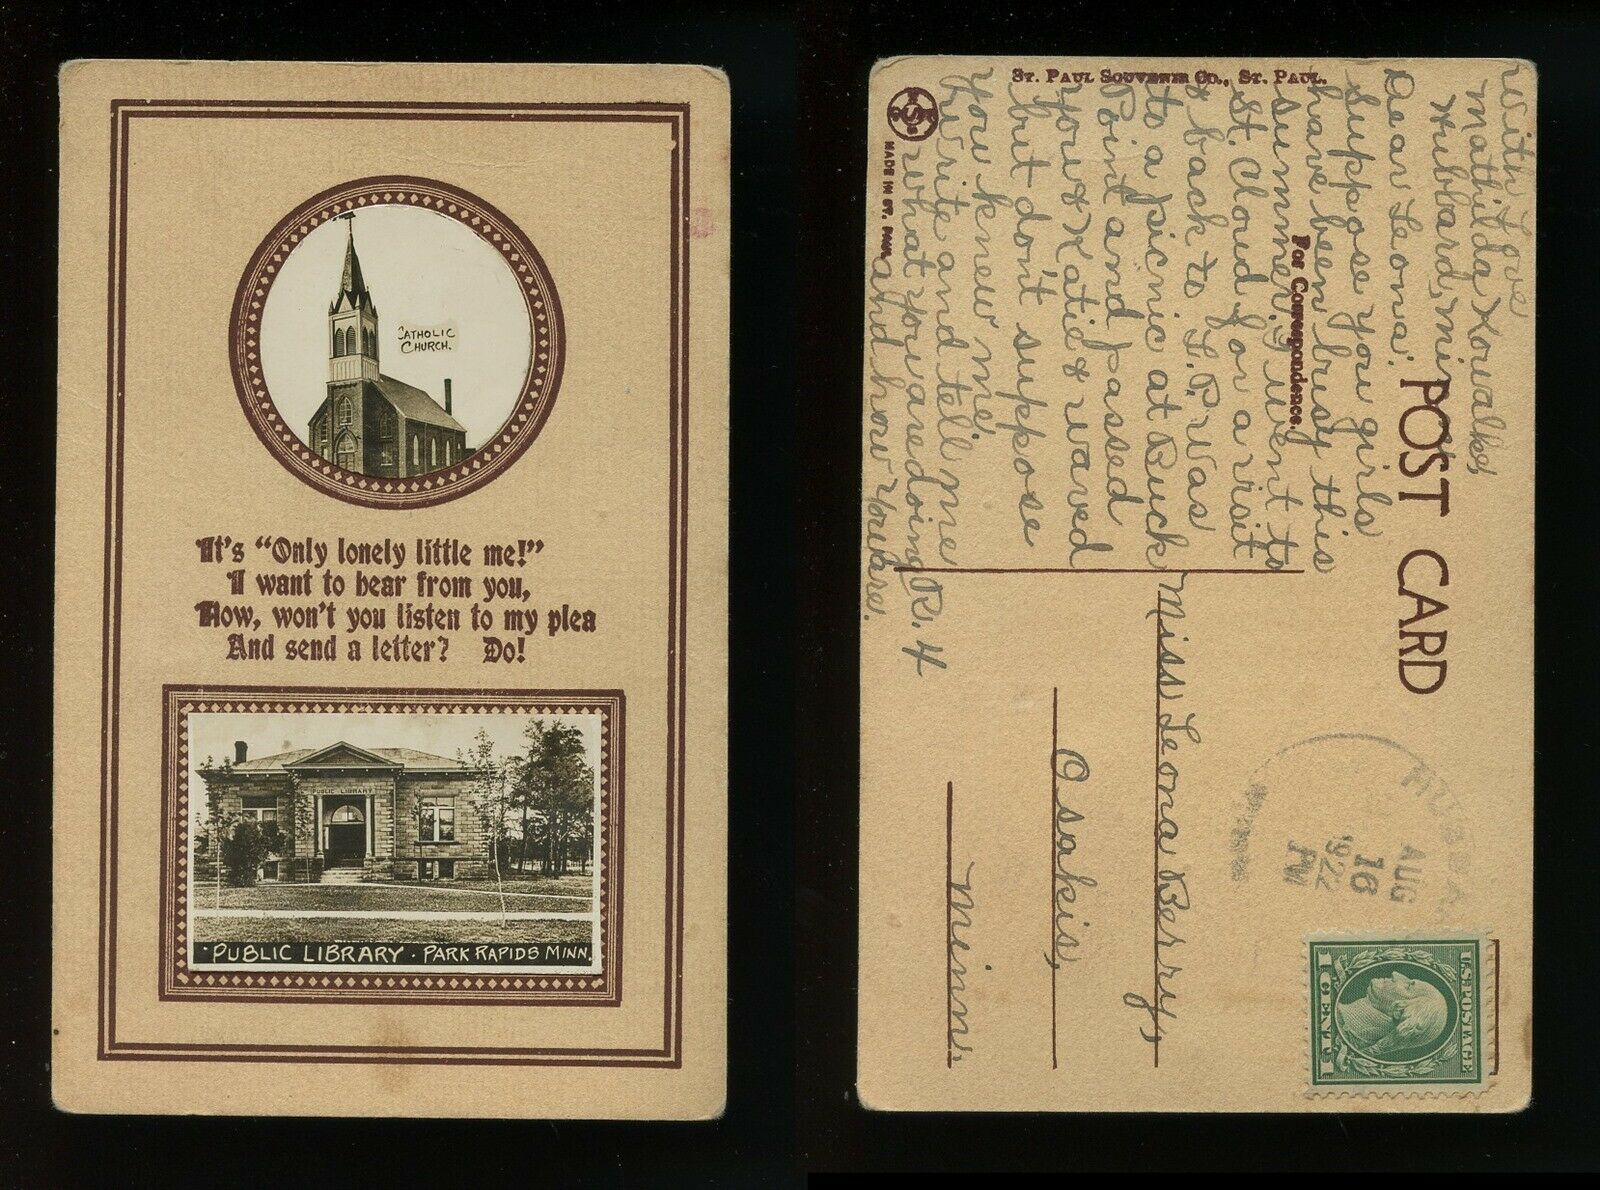 CATHOLIC
CHURCH.
It's "Only lonely little me!"
I want to hear from you,
Now, won't you listen to my plea
And send a letter? Do!
PUBLIC LIBRARY
PUBLIC LIBRARY. PARK RAPIDS MINN.
ST. PAUL SOUVENIR CO., ST. PAUL.
MADE IN ST. PAUL
For Correspondence.
POST CARD
With Love
Mathilda Kowalke,
Hubbard, Minn.
Dear Leona:
Suppose you girls
have been busy this
summer. I went to
St. Cloud for a visit
& back to L.P. Was
to a picnic at Buck
Point and passed
you & Katie & waved
but don't suppose
you knew me.
Write and tell me
what you are doing
and how you are.
R. 4
Miss Leona Berry,
Osakis,
Minn.
HUBBARD
AUG
16
1922
PM
MINN.
U.S. POSTAGE
1 CENT 1